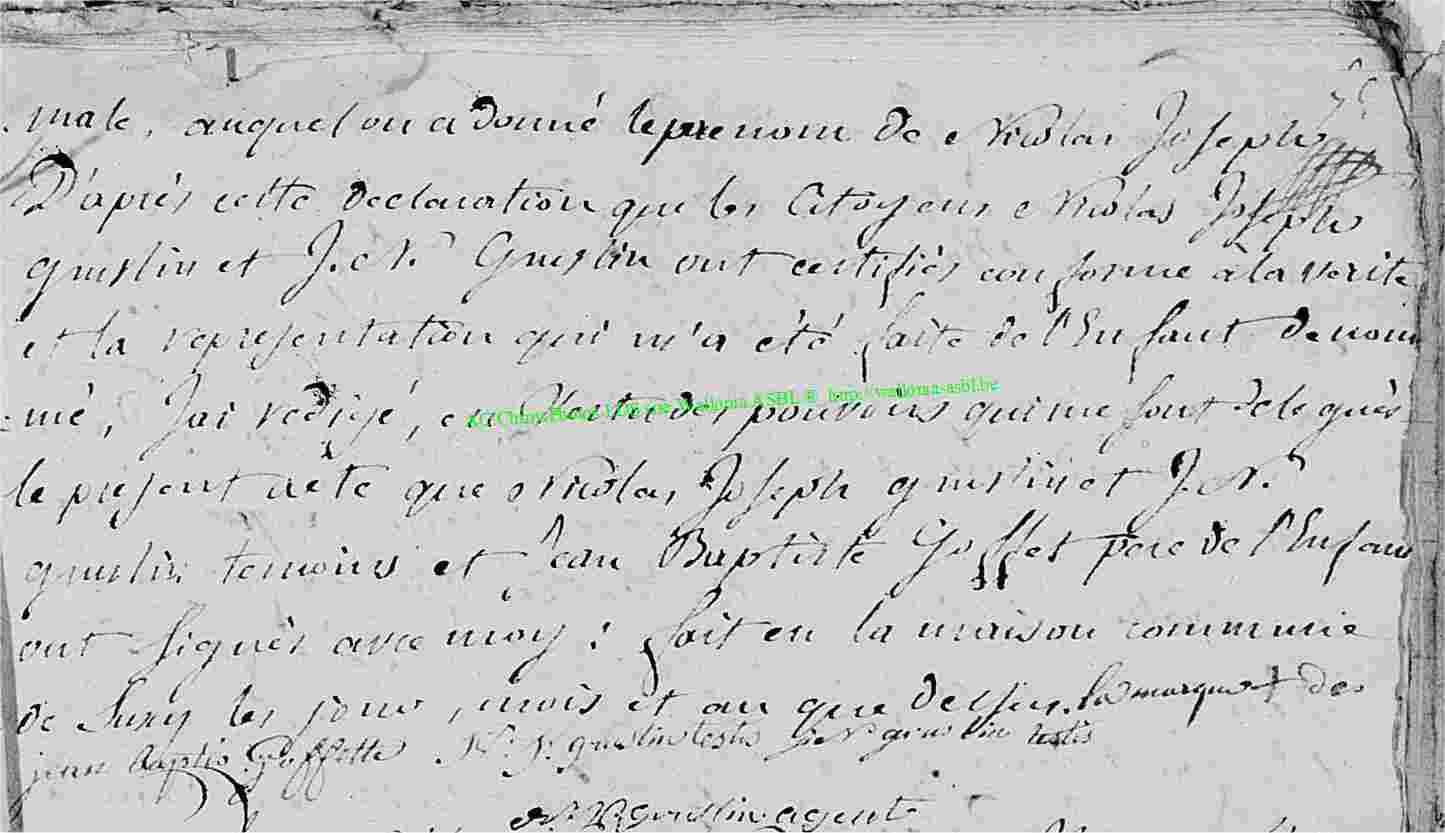 male, auquel on a donné le prenom de Nicolas Joseph
D'après cette declaration que les Citoyens Nicolas Joseph
gruslin et J. N. Gruslin ont certifiés conforme à la verité
et la representation qui m'a été faite de l'Enfant denom
=mé, J'ai redigé, en des pouvoirs qui me sont delegués
le present acte que Nicolas Joseph gruslin et J. N.
gruslin temoins et Jean Baptiste Goffet pere de l'Enfant
ont signés avec moy : fait en la maison commune
de Suxy les jour, mois et an que dessus. la marque + de
jean baptis Goffette N. J. gruslin testis J N gruslin testis
gruslin agent
AC Chiny Luxembourg Wallonia ASBL © http://wallonia-asbl.be